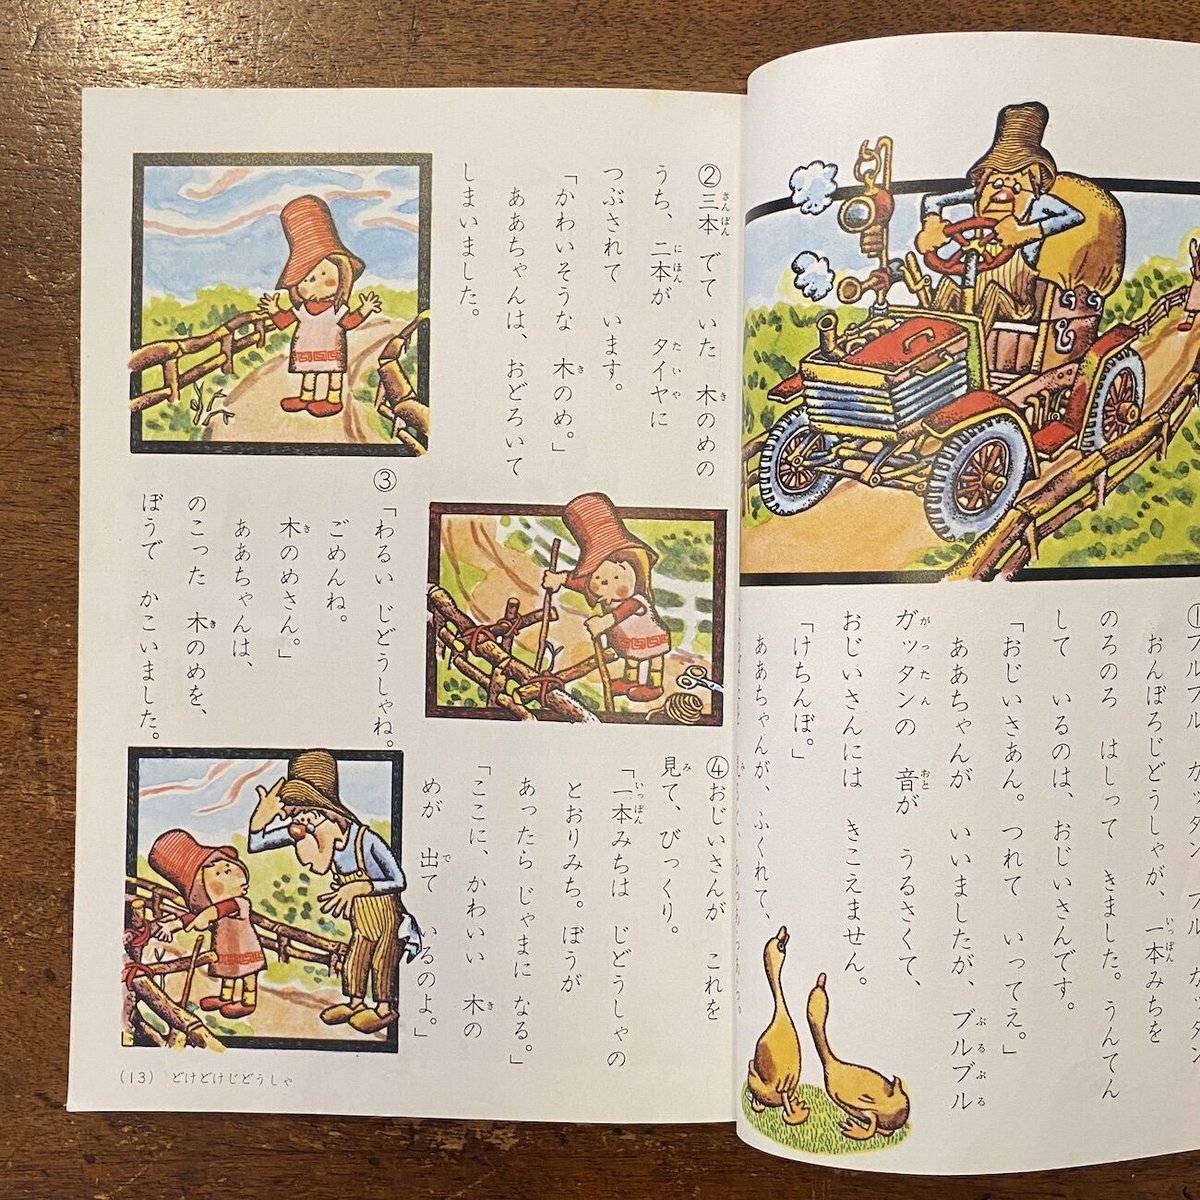 おんぼろじどうしゃが、一本みちを
のろのろ はしって きました。うんてん
して いるのは、おじいさんです。
「おじいさあん。つれて いってえ。」
ああちゃんが いいましたが、ブルブル
ガッタンの 音が うるさくて、
おじいさんには きこえません。
「けちんぼ。」
ああちゃんが、ふくれて、
②三本 でて いた 木のめの
うち、二本が タイヤに
つぶされて います。
「かわいそうな 木のめ。」
ああちゃんは、おどろいて
しまいました。
③
「わるい じどうしゃね。
ごめんね。
木のめさん。」
ああちゃんは、
のこった 木のめを、
ぼうで かこいました。
④おじいさんが これを
見て、びっくり。
「一本みちは じどうしゃの
とおりみち。ぼうが
あったら じゃまに なる。」
「ここに、かわいい 木の
めが 出て いるのよ。」
(13) どけどけじどうしゃ